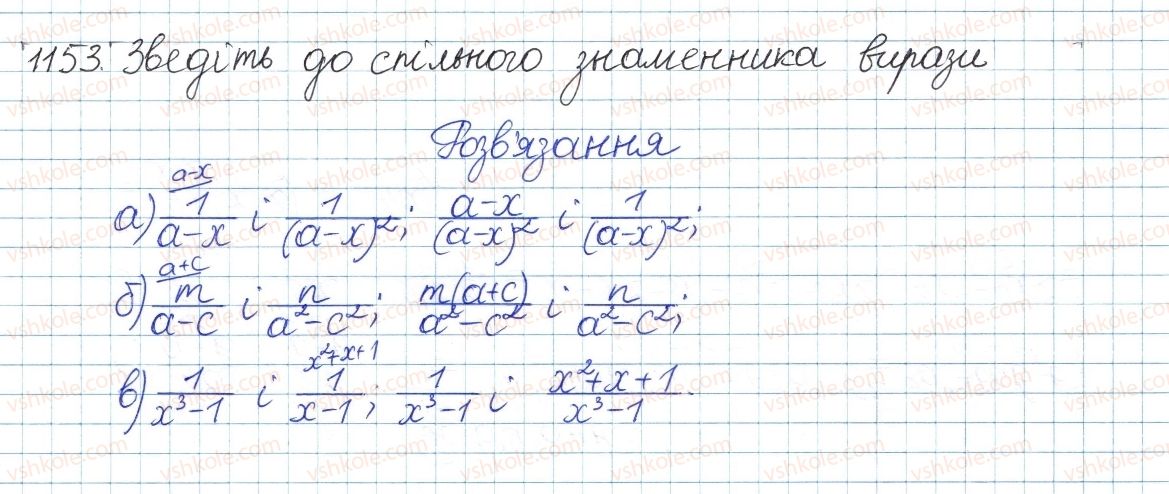 1153. Зведіть до спільного знаменника вирази
Розв'язання
а) \frac{1}{a-x}^{a-x} і \frac{1}{(a-x)^2}; \frac{a-x}{(a-x)^2} і \frac{1}{(a-x)^2};
б) \frac{m}{a-c}^{a+c} і \frac{n}{a^2-c^2}; \frac{m(a+c)}{a^2-c^2} і \frac{n}{a^2-c^2};
в) \frac{1}{x^3-1} і \frac{1}{x-1}^{x^2+x+1}; \frac{1}{x^3-1} і \frac{x^2+x+1}{x^3-1}.